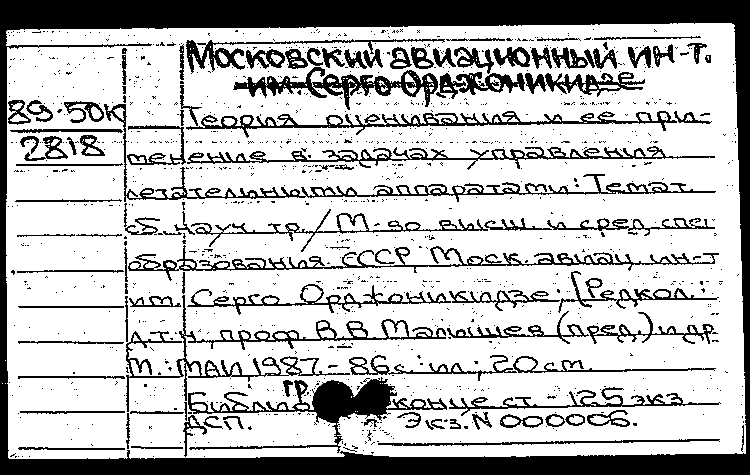 Московский авиационный ин-т.
им Серго Орджоникидзе
89-50к
2818
Теория оценивания и ее при-
менение в задачах управления
летательными аппаратами: Темат.
сб. науч. тр. / М-во высш. и сред. спец
образования СССР, Моск. авиац. ин-т
им. Серго Орджоникидзе; [Редкол.:
д.т.н., проф. В.В Малышев (пред.) и др
М.: МАИ 1987. - 86с.: ил; 20см.
Библиогр конце ст. - 125 экз.
ДСП. Экз. N 000006.